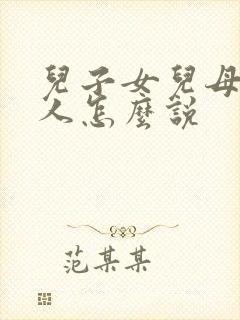 兒子女兒母
人怎麼說
范某某